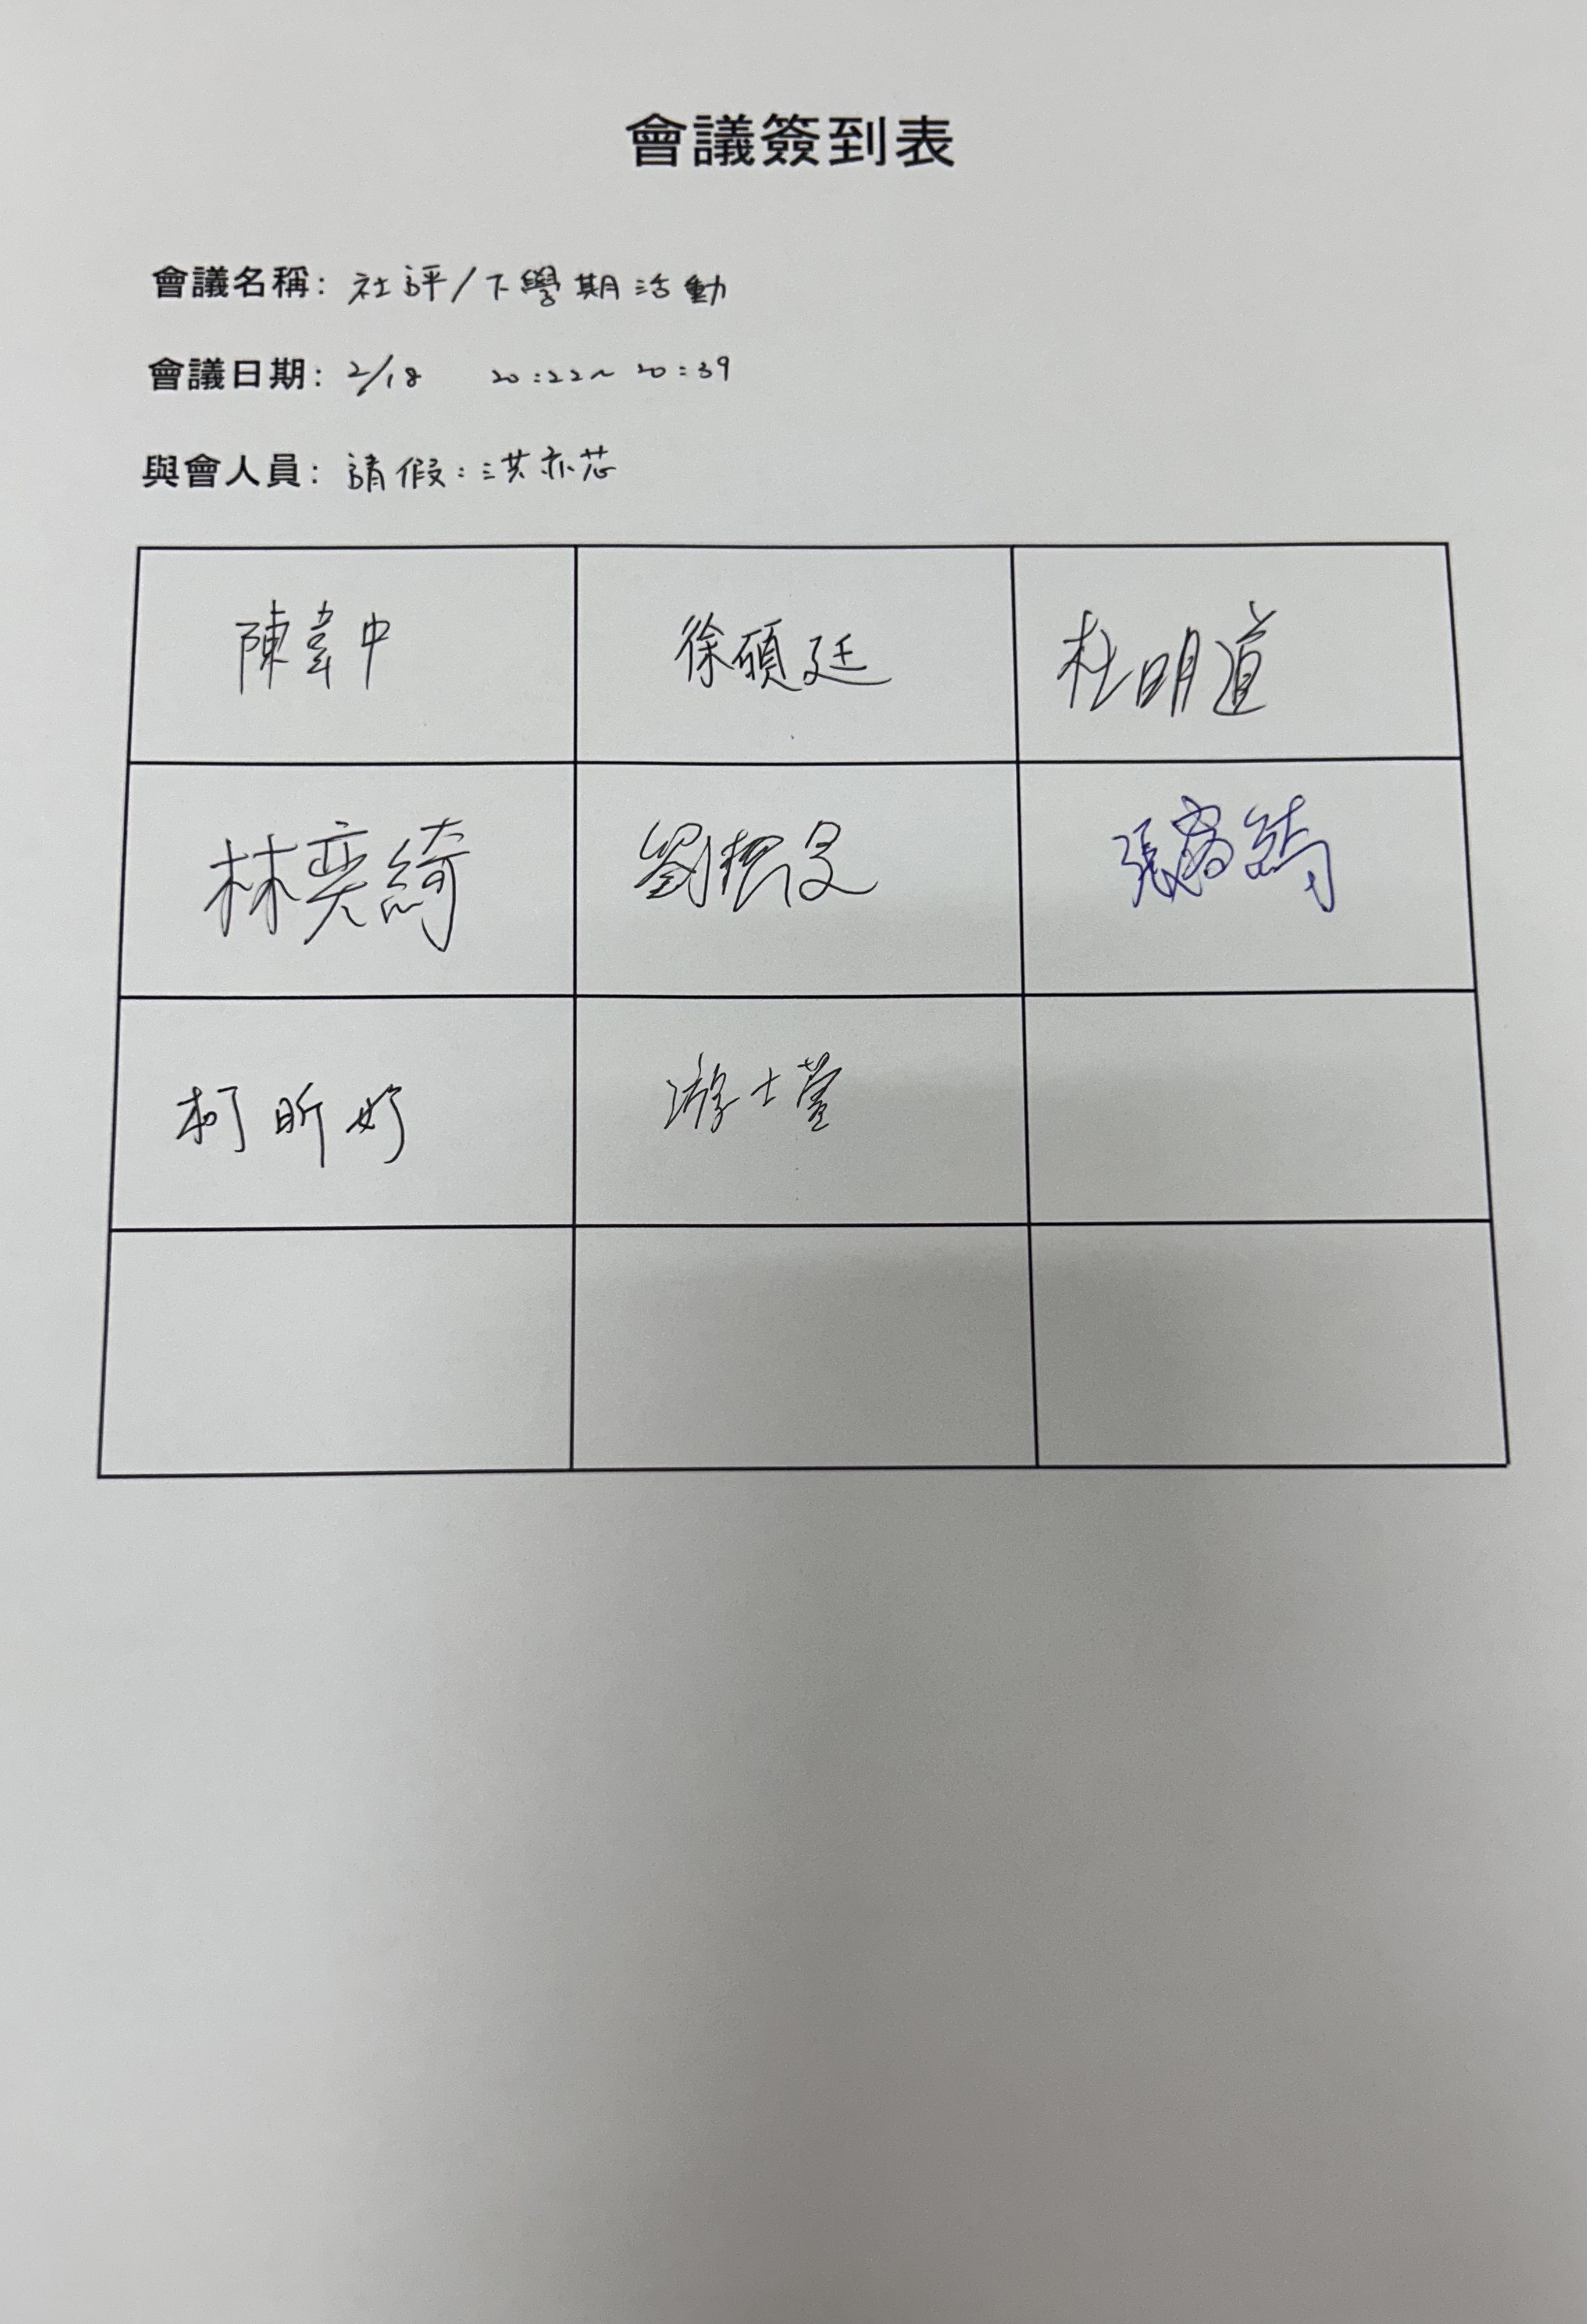 會議簽到表
會議名稱：社評/下學期活動
會議日期：2/18 20:22~20:39
與會人員：請假：洪亦芯
陳韋中 徐碩廷 杜明道
林奕綺 劉 張
柯昕妤 游士萱